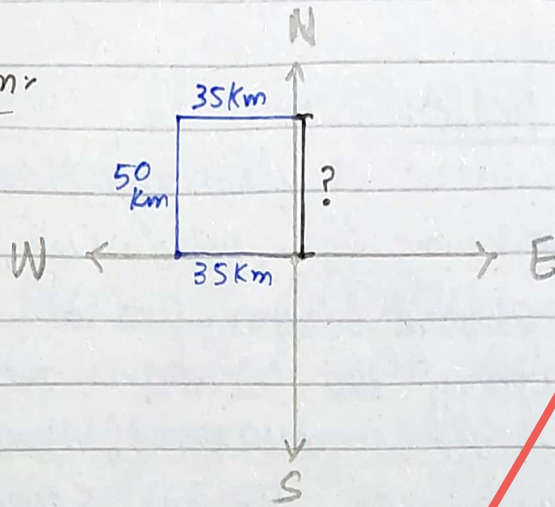 N
n:-
35Km
50
Km
?
W
E
35Km
S